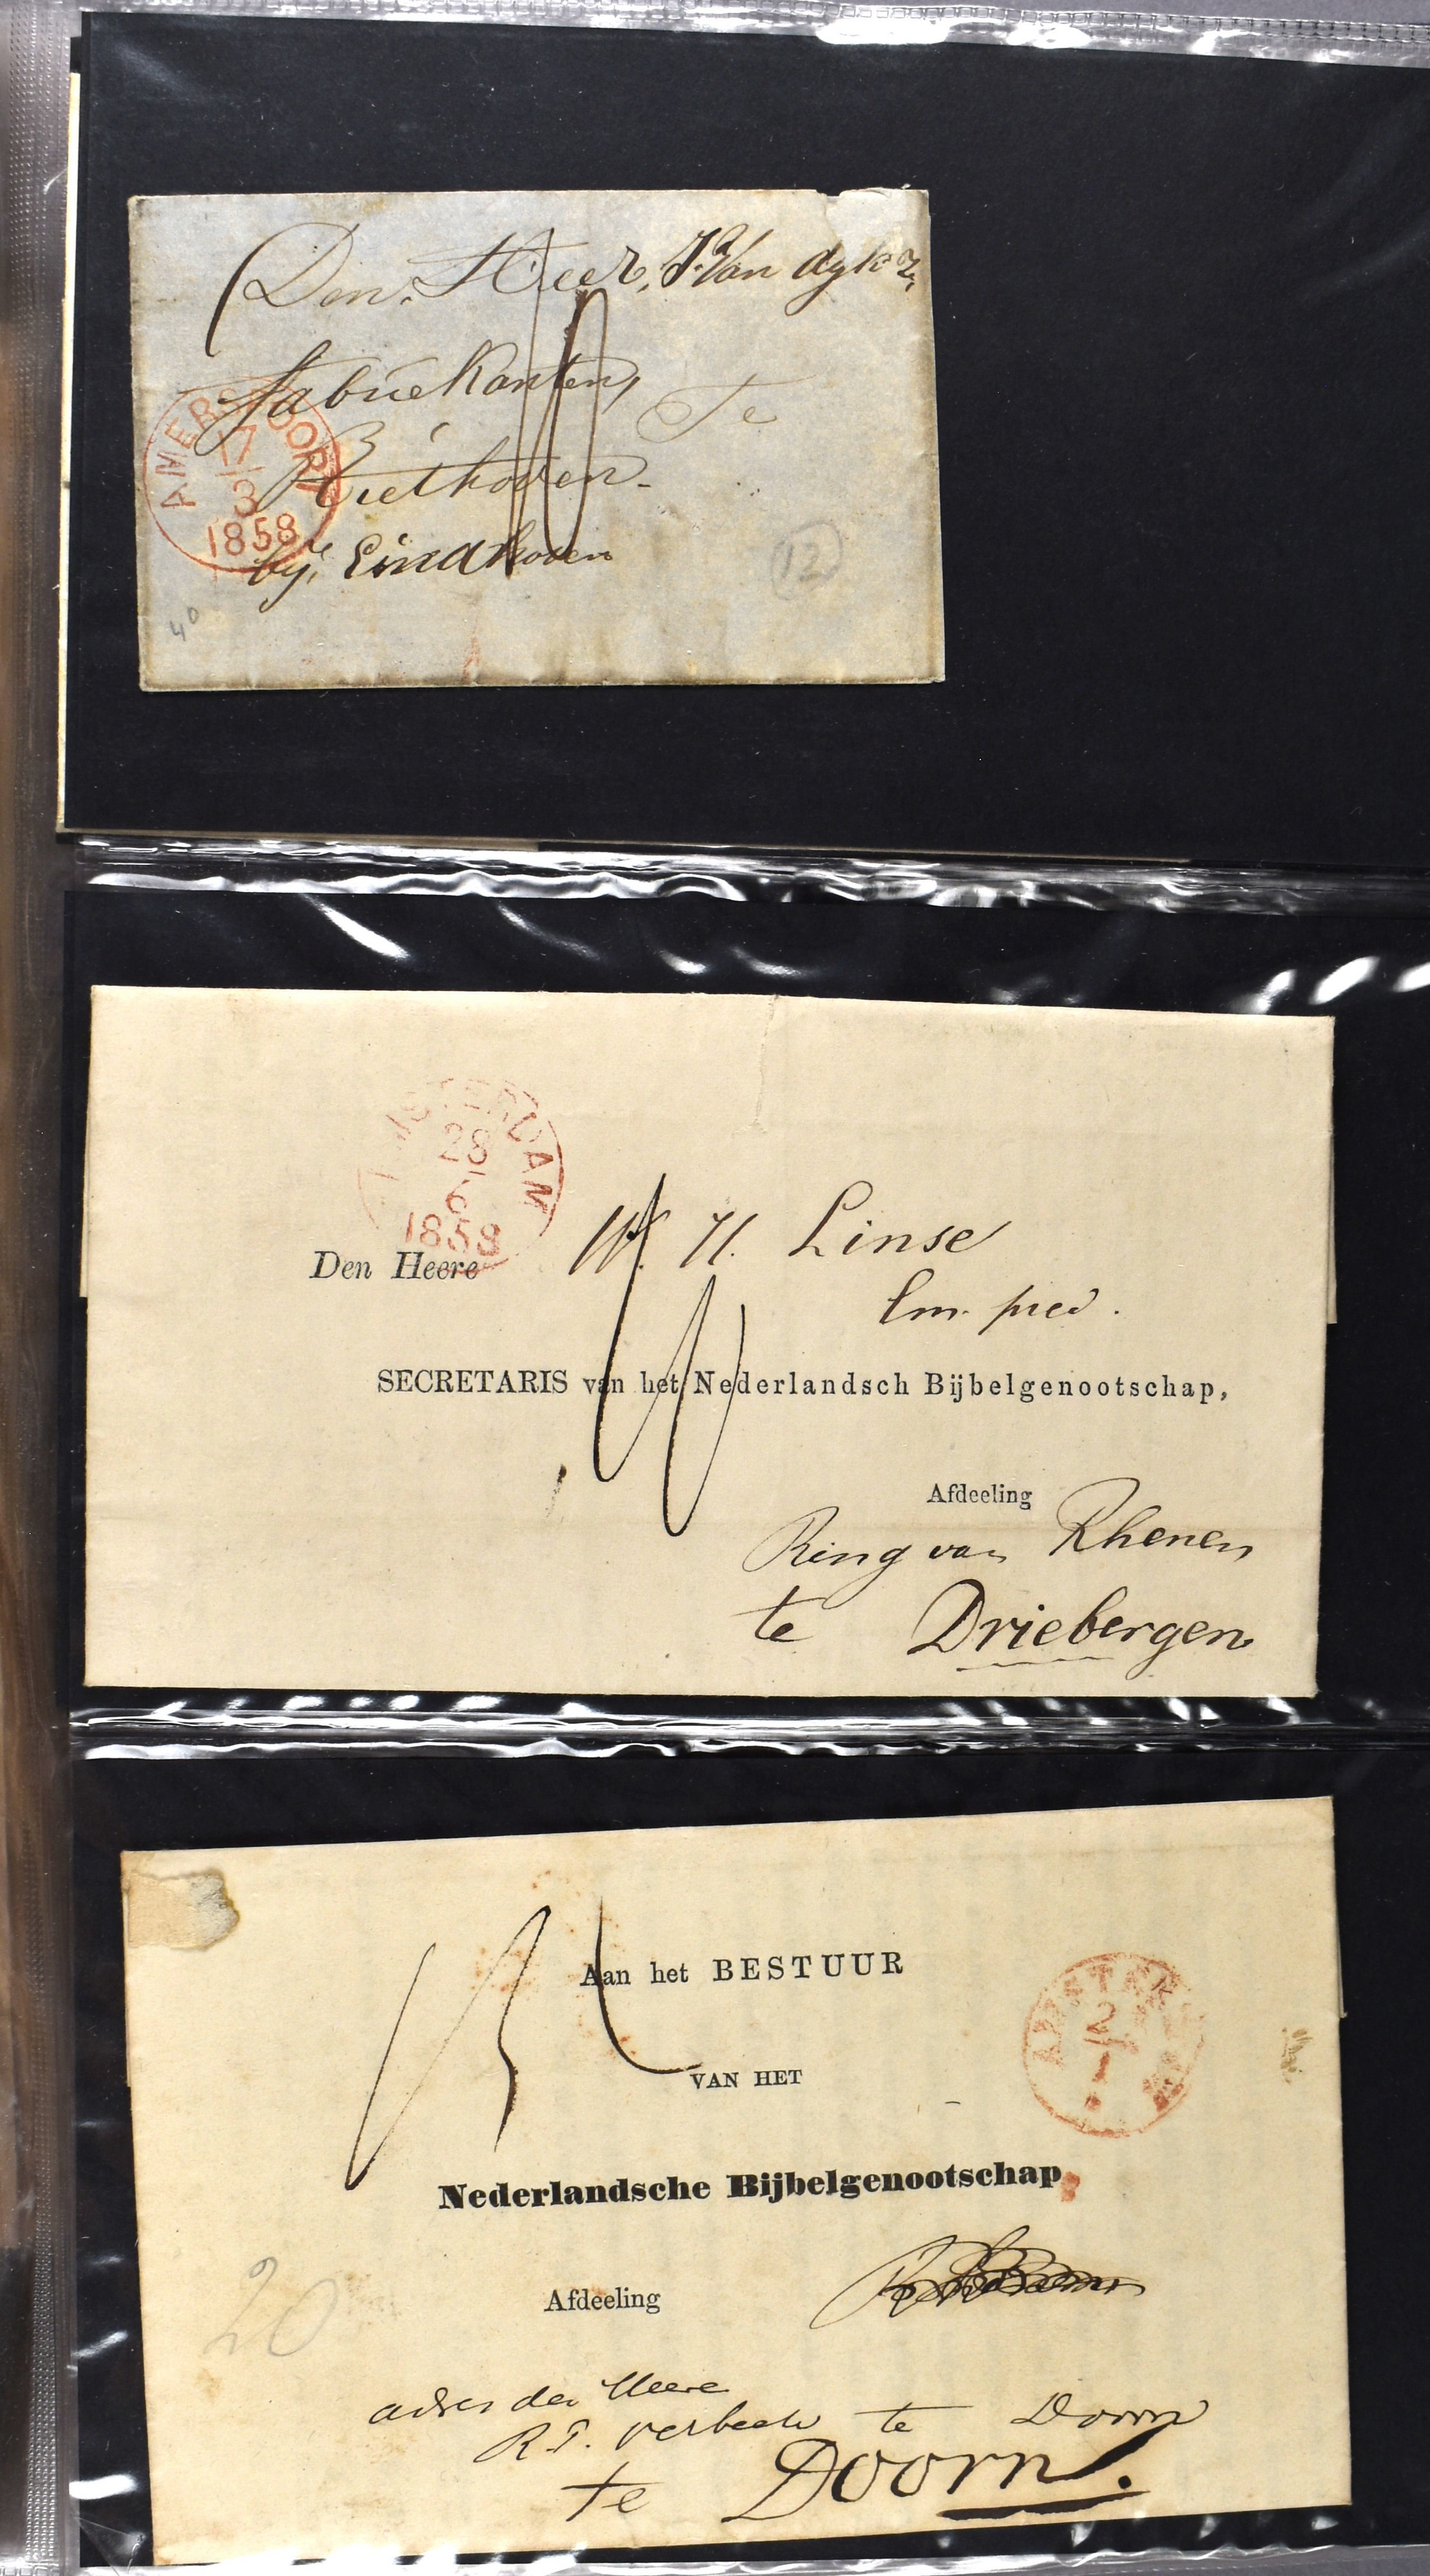 Den Heer, J. Van dyk
fabriekanten,
Te
Riethoven.
bij Eindhoven
10
AMERSFOORT
17
3
1858
12
40
AMSTERDAM
28
6
1858
Den Heere W. H. Linse
Em. pred.
SECRETARIS van het Nederlandsch Bijbelgenootschap,
Afdeeling
Ring van Rhenen
te Driebergen
10
Aan het BESTUUR
VAN HET
Nederlandsche Bijbelgenootschap
Afdeeling
20
adres den Heere
R. T. Verbeek te Doorn
te Doorn.